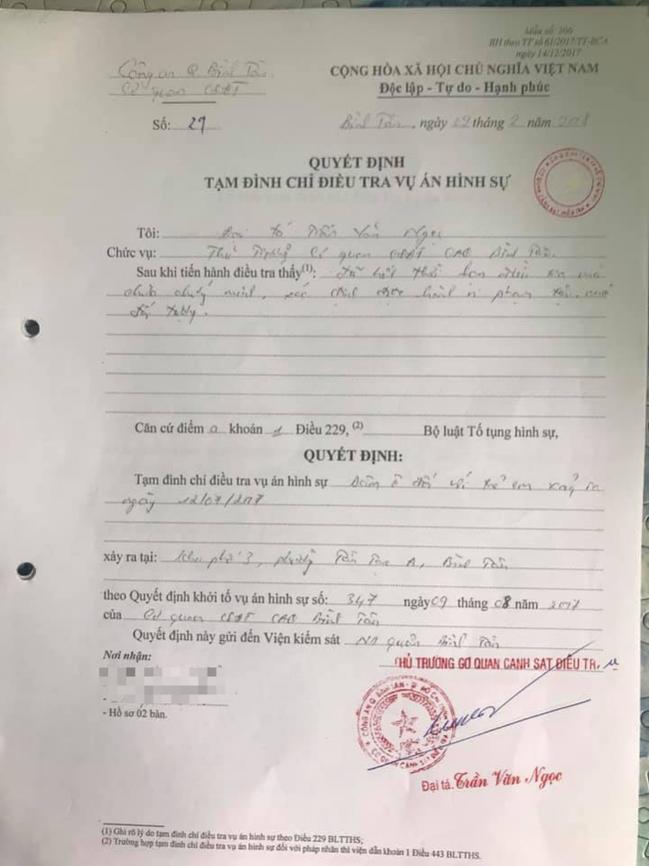 Mẫu số: 106
BH theo TT số 61/2017/TT-BCA
ngày 14/12/2017
Công an Q. Bình Tân
Cơ quan CSĐT
CỘNG HÒA XÃ HỘI CHỦ NGHĨA VIỆT NAM
Độc lập - Tự do - Hạnh phúc
Số: 29
Bình Tân, ngày tháng 2 năm 2018
QUYẾT ĐỊNH
TẠM ĐÌNH CHỈ ĐIỀU TRA VỤ ÁN HÌNH SỰ
Tôi: Đại tá Trần Văn Ngọc
Chức vụ: Thủ trưởng Cơ quan CSĐT CAQ Bình Tân
Sau khi tiến hành điều tra thấy(1): đã hết thời hạn điều tra mà
chưa chứng minh, xác định được hành vi phạm tội
Căn cứ điểm a khoản 1 Điều 229, (2) Bộ luật Tố tụng hình sự,
QUYẾT ĐỊNH:
Tạm đình chỉ điều tra vụ án hình sự Dâm ô đối với trẻ em xảy ra
ngày 12/07/2017
xảy ra tại: khu phố 3, phường Tân Tạo A, Bình Tân
theo Quyết định khởi tố vụ án hình sự số: 347 ngày 09 tháng 08 năm 2017
của Cơ quan CSĐT CAQ Bình Tân
Quyết định này gửi đến Viện kiểm sát ND quận Bình Tân
Nơi nhận:
- Hồ sơ 02 bản.
THỦ TRƯỞNG CƠ QUAN CẢNH SÁT ĐIỀU TRA
Đại tá. Trần Văn Ngọc
(1) Ghi rõ lý do tạm đình chỉ điều tra vụ án hình sự theo Điều 229 BLTTHS;
(2) Trường hợp tạm đình chỉ điều tra vụ án hình sự đối với pháp nhân thì viện dẫn khoản 1 Điều 443 BLTTHS.